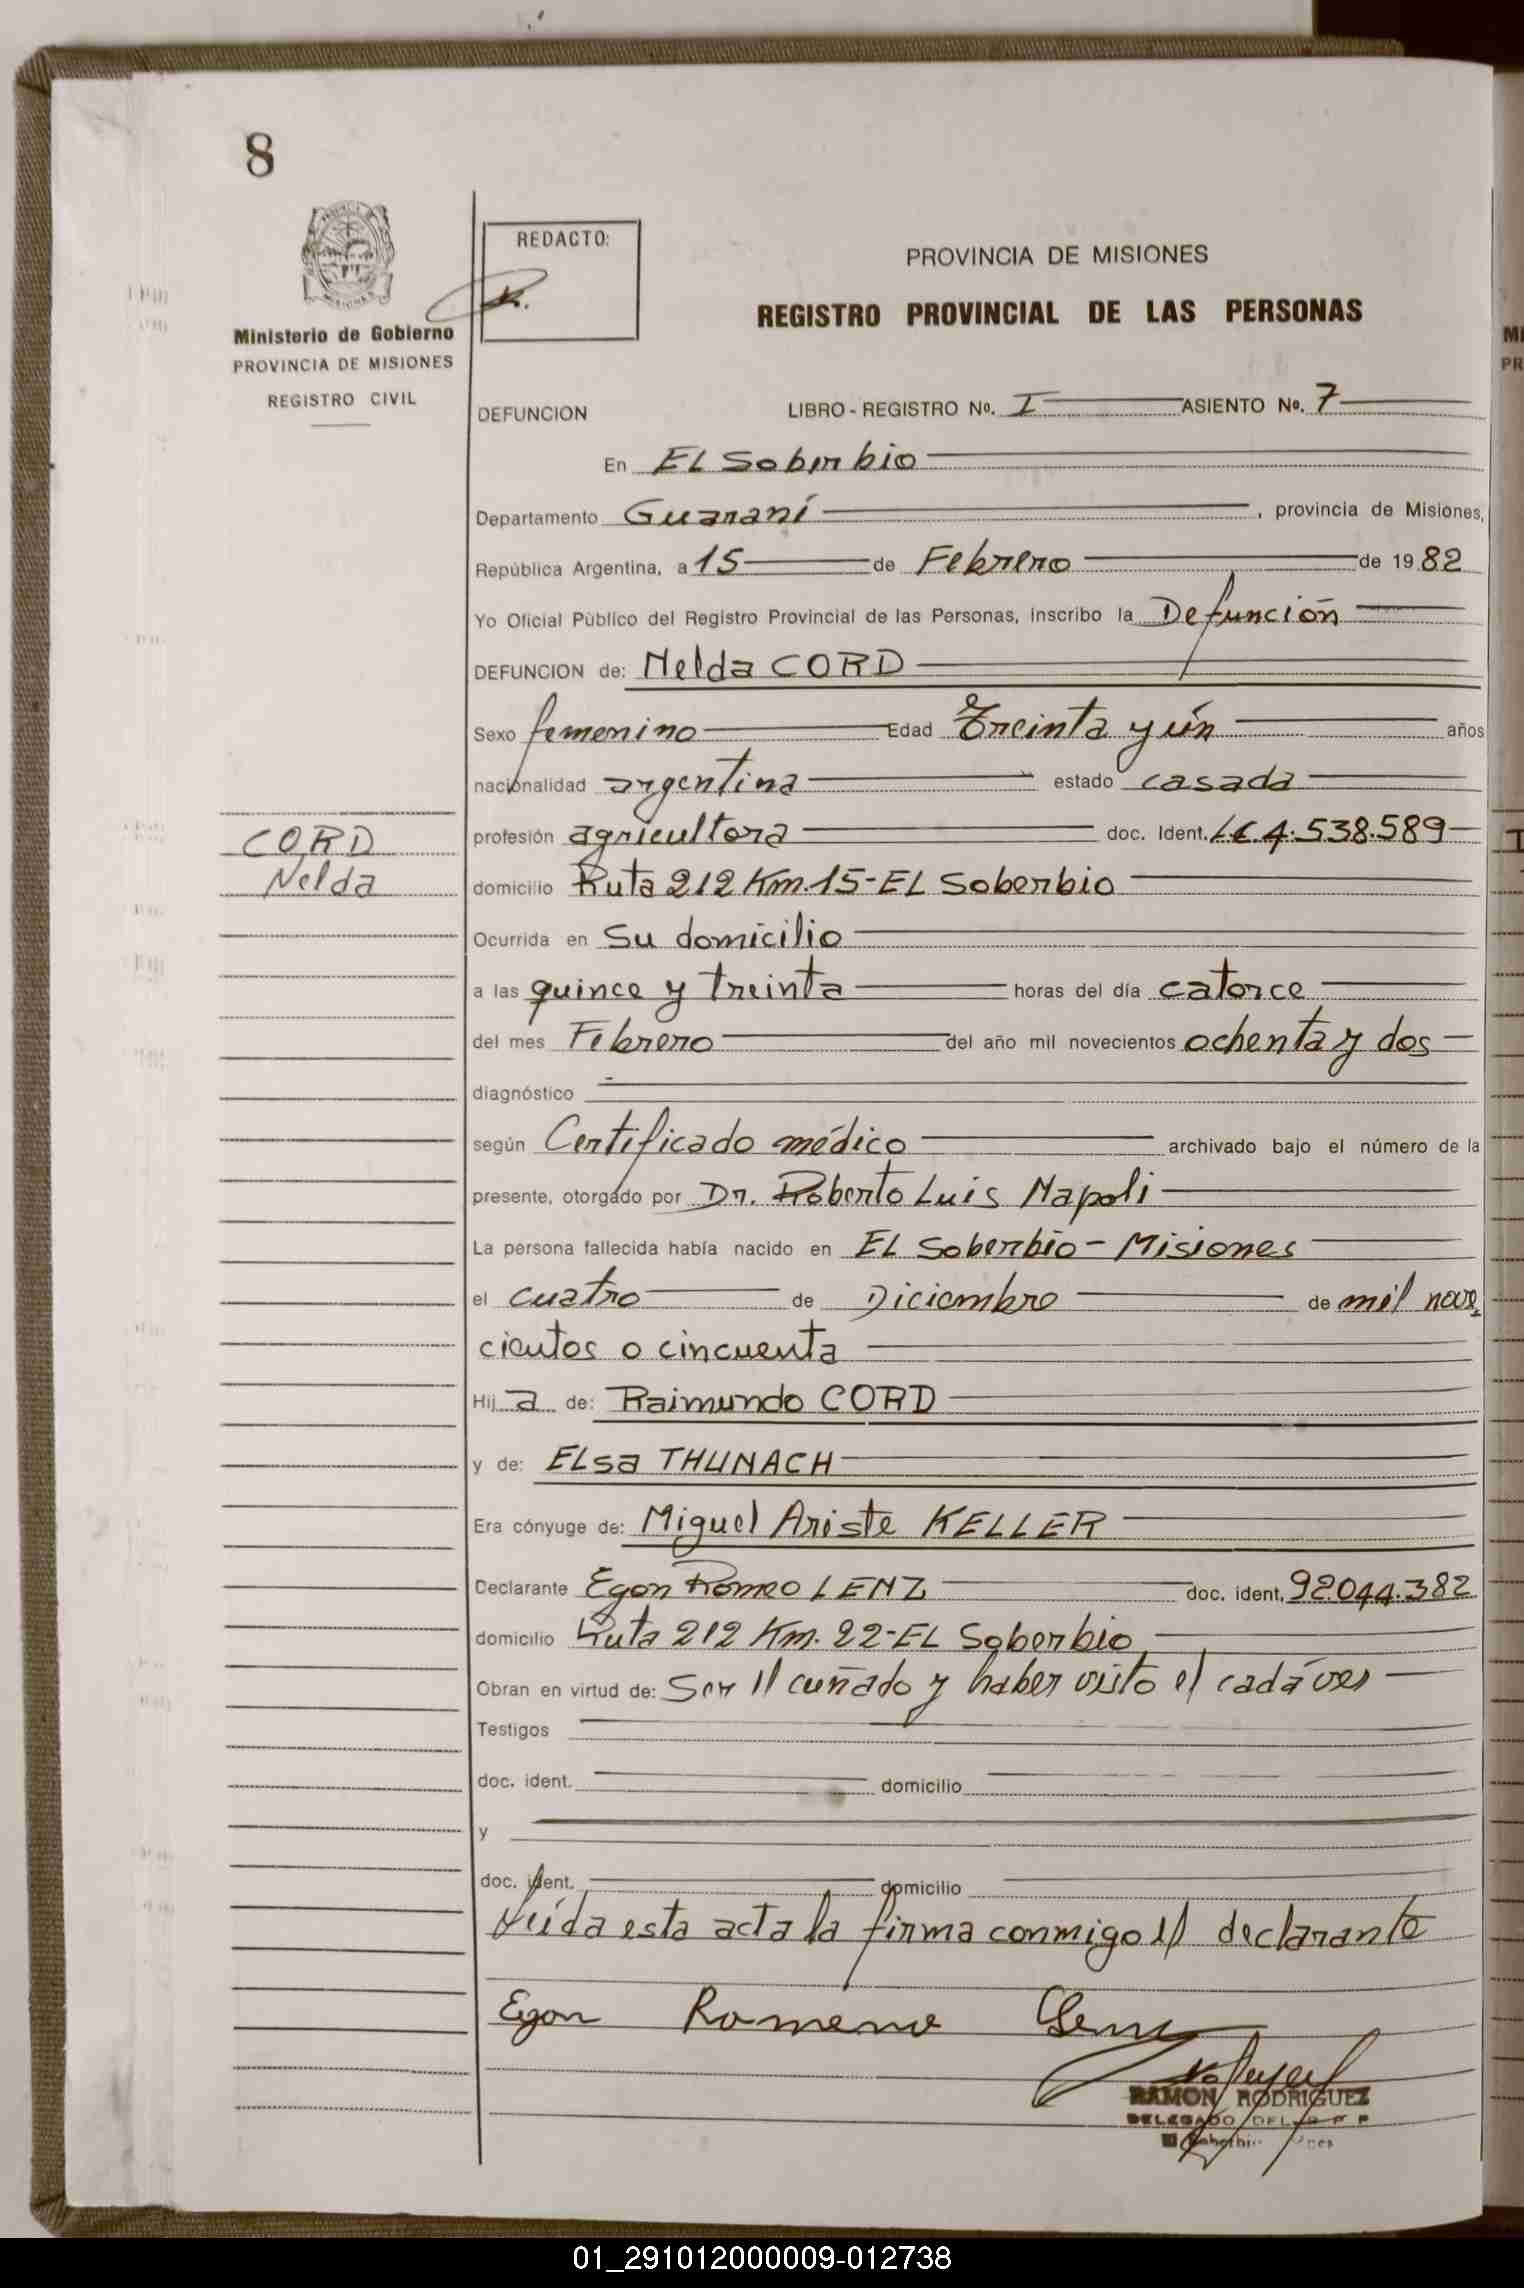 8
Ministerio de Gobierno
PROVINCIA DE MISIONES
REGISTRO CIVIL
REDACTO:
PROVINCIA DE MISIONES
REGISTRO PROVINCIAL DE LAS PERSONAS
DEFUNCION LIBRO - REGISTRO Nº. I ASIENTO Nº. 7
En EL Soberbio
Departamento Guaraní, provincia de Misiones,
República Argentina, a 15 de Febrero de 1982
Yo Oficial Público del Registro Provincial de las Personas, inscribo la Defunción
DEFUNCION de: Nelda CORD
Sexo femenino Edad Treinta y ún años
nacionalidad argentina estado casada
CORD
Nelda
profesión agricultora doc. Ident. LC 4.538.589
domicilio Ruta 212 Km. 15-EL Soberbio
Ocurrida en Su domicilio
a las quince y treinta horas del día catorce
del mes Febrero del año mil novecientos ochenta y dos
diagnóstico
según Certificado médico archivado bajo el número de la
presente, otorgado por Dr. Roberto Luis Napoli
La persona fallecida había nacido en EL Soberbio - Misiones
el cuatro de Diciembre de mil nove
cientos o cincuenta
Hij a de: Raimundo CORD
y de: ELsa THUNACH
Era cónyuge de: Miguel Ariste KELLER
Declarante Egon Romeo LENZ doc. ident. 92.044.382
domicilio Ruta 212 Km. 22-EL Soberbio
Obran en virtud de: Ser el cuñado y haber visto el cadáver
Testigos
doc. ident. domicilio
y
doc. ident. domicilio
Leída esta acta la firma conmigo el declarante
Egon
RAMON RODRIGUEZ
DELEGADO DEL R P P
01_291012000009-012738